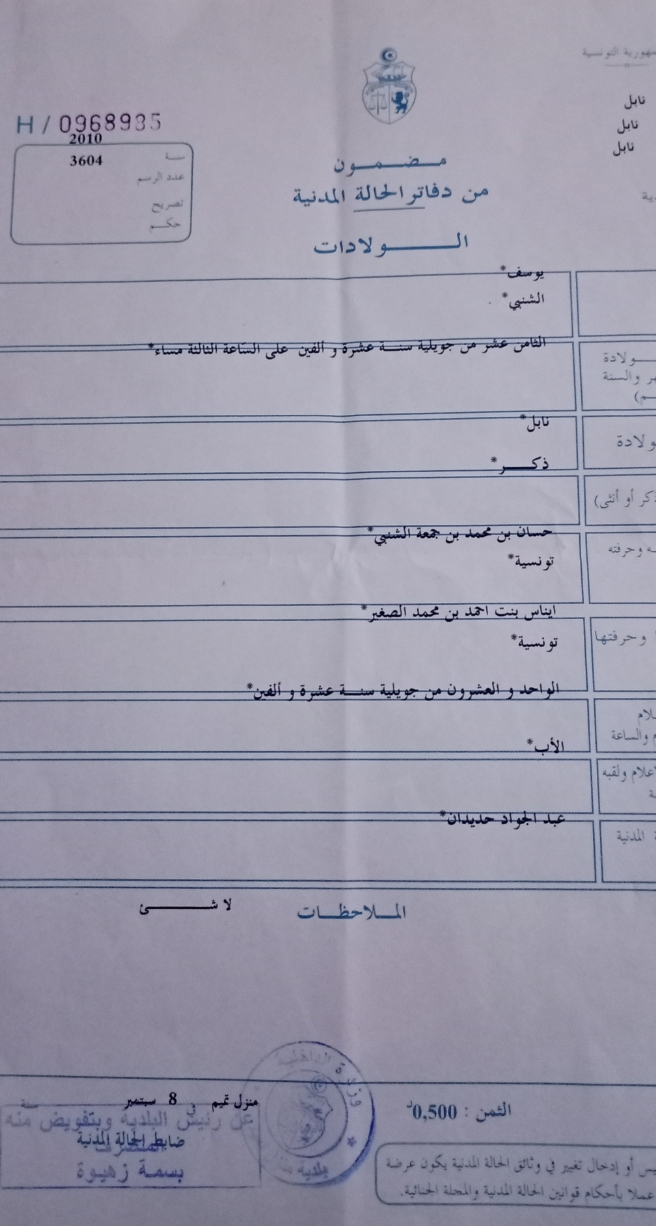 الجمهورية التونسية
نابل
نابل
نابل
H / 0968935
سنة 2010
عدد الرسم 3604
تصريح
حكم
مضمون
من دفاتر الحالة المدنية
الولادات
يوسف*
الشنبي*
الثامن عشر من جويلية سنة عشرة و ألفين على الساعة الثالثة مساء*
ولادة
هر والسنة
نابل*
ولادة
ذكر*
ذكر أو أنثى)
حسان بن محمد بن جمعة الشنبي*
ه وحرفته
تونسية*
ايناس بنت احمد بن محمد الصغير*
وحرفتها
تونسية*
الواحد و العشرون من جويلية سنة عشرة و ألفين*
لام
م والساعة
الأب*
لاعلام ولقبه
عبد الجواد حديدان*
المدنية
الملاحظات
لا شئ
وزارة الداخلية
منزل تميم في 8 سبتمبر سنة
عن رئيس البلدية وبتفويض منه
ضابط الحالة المدنية
بسمة زهيوة
الثمن : 0,500د
يس أو إدخال تغيير في وثائق الحالة المدنية يكون عرضة
عملا بأحكام قوانين الحالة المدنية والمجلة الجنائية.